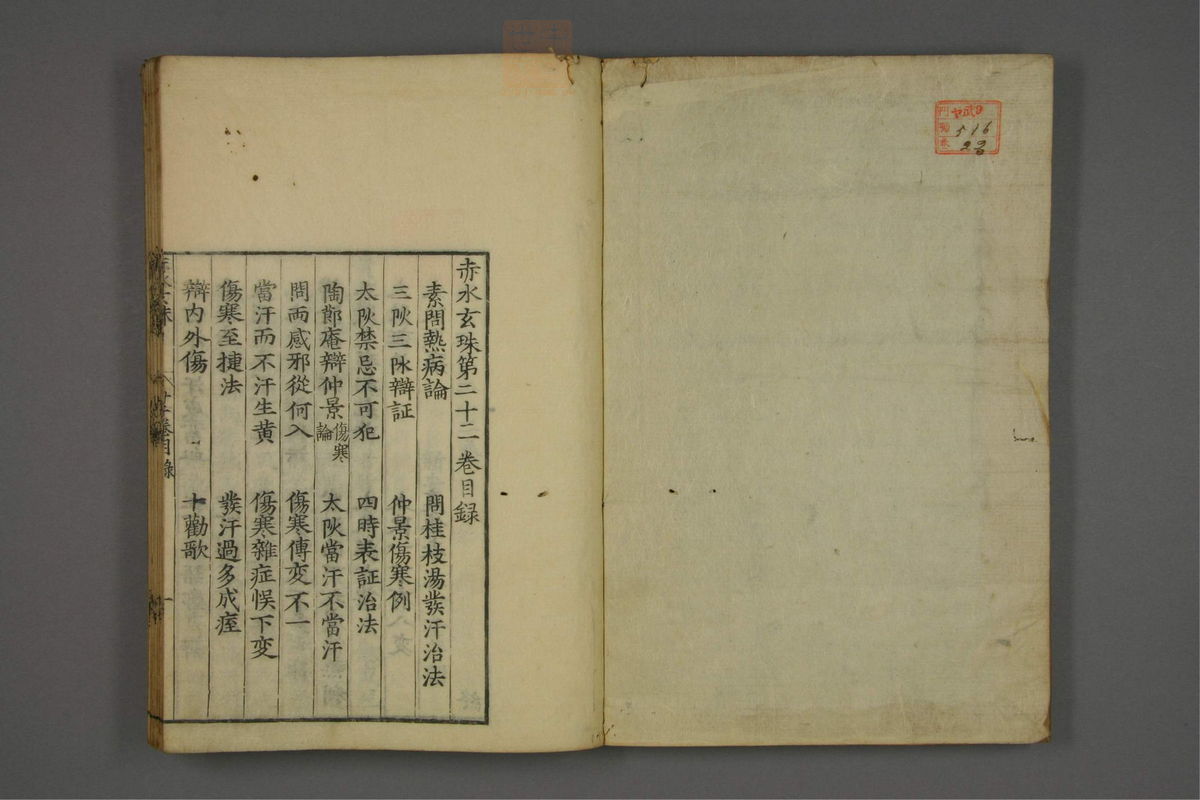 赤水玄珠第二十二卷目録
素問熱病論　問桂枝湯發汗治法
三阦三脉辯証　仲景傷寒例
太阦禁忌不可犯　四時表証治法
陶節庵辯仲景傷寒論　太阦當汗不當汗
問兩感邪從何入　傷寒傳変不一
當汗而不汗生黄　傷寒雜症悮下変
傷寒至捷法　發汗過多成痓
辯内外傷　十勸歌
卷目録
516